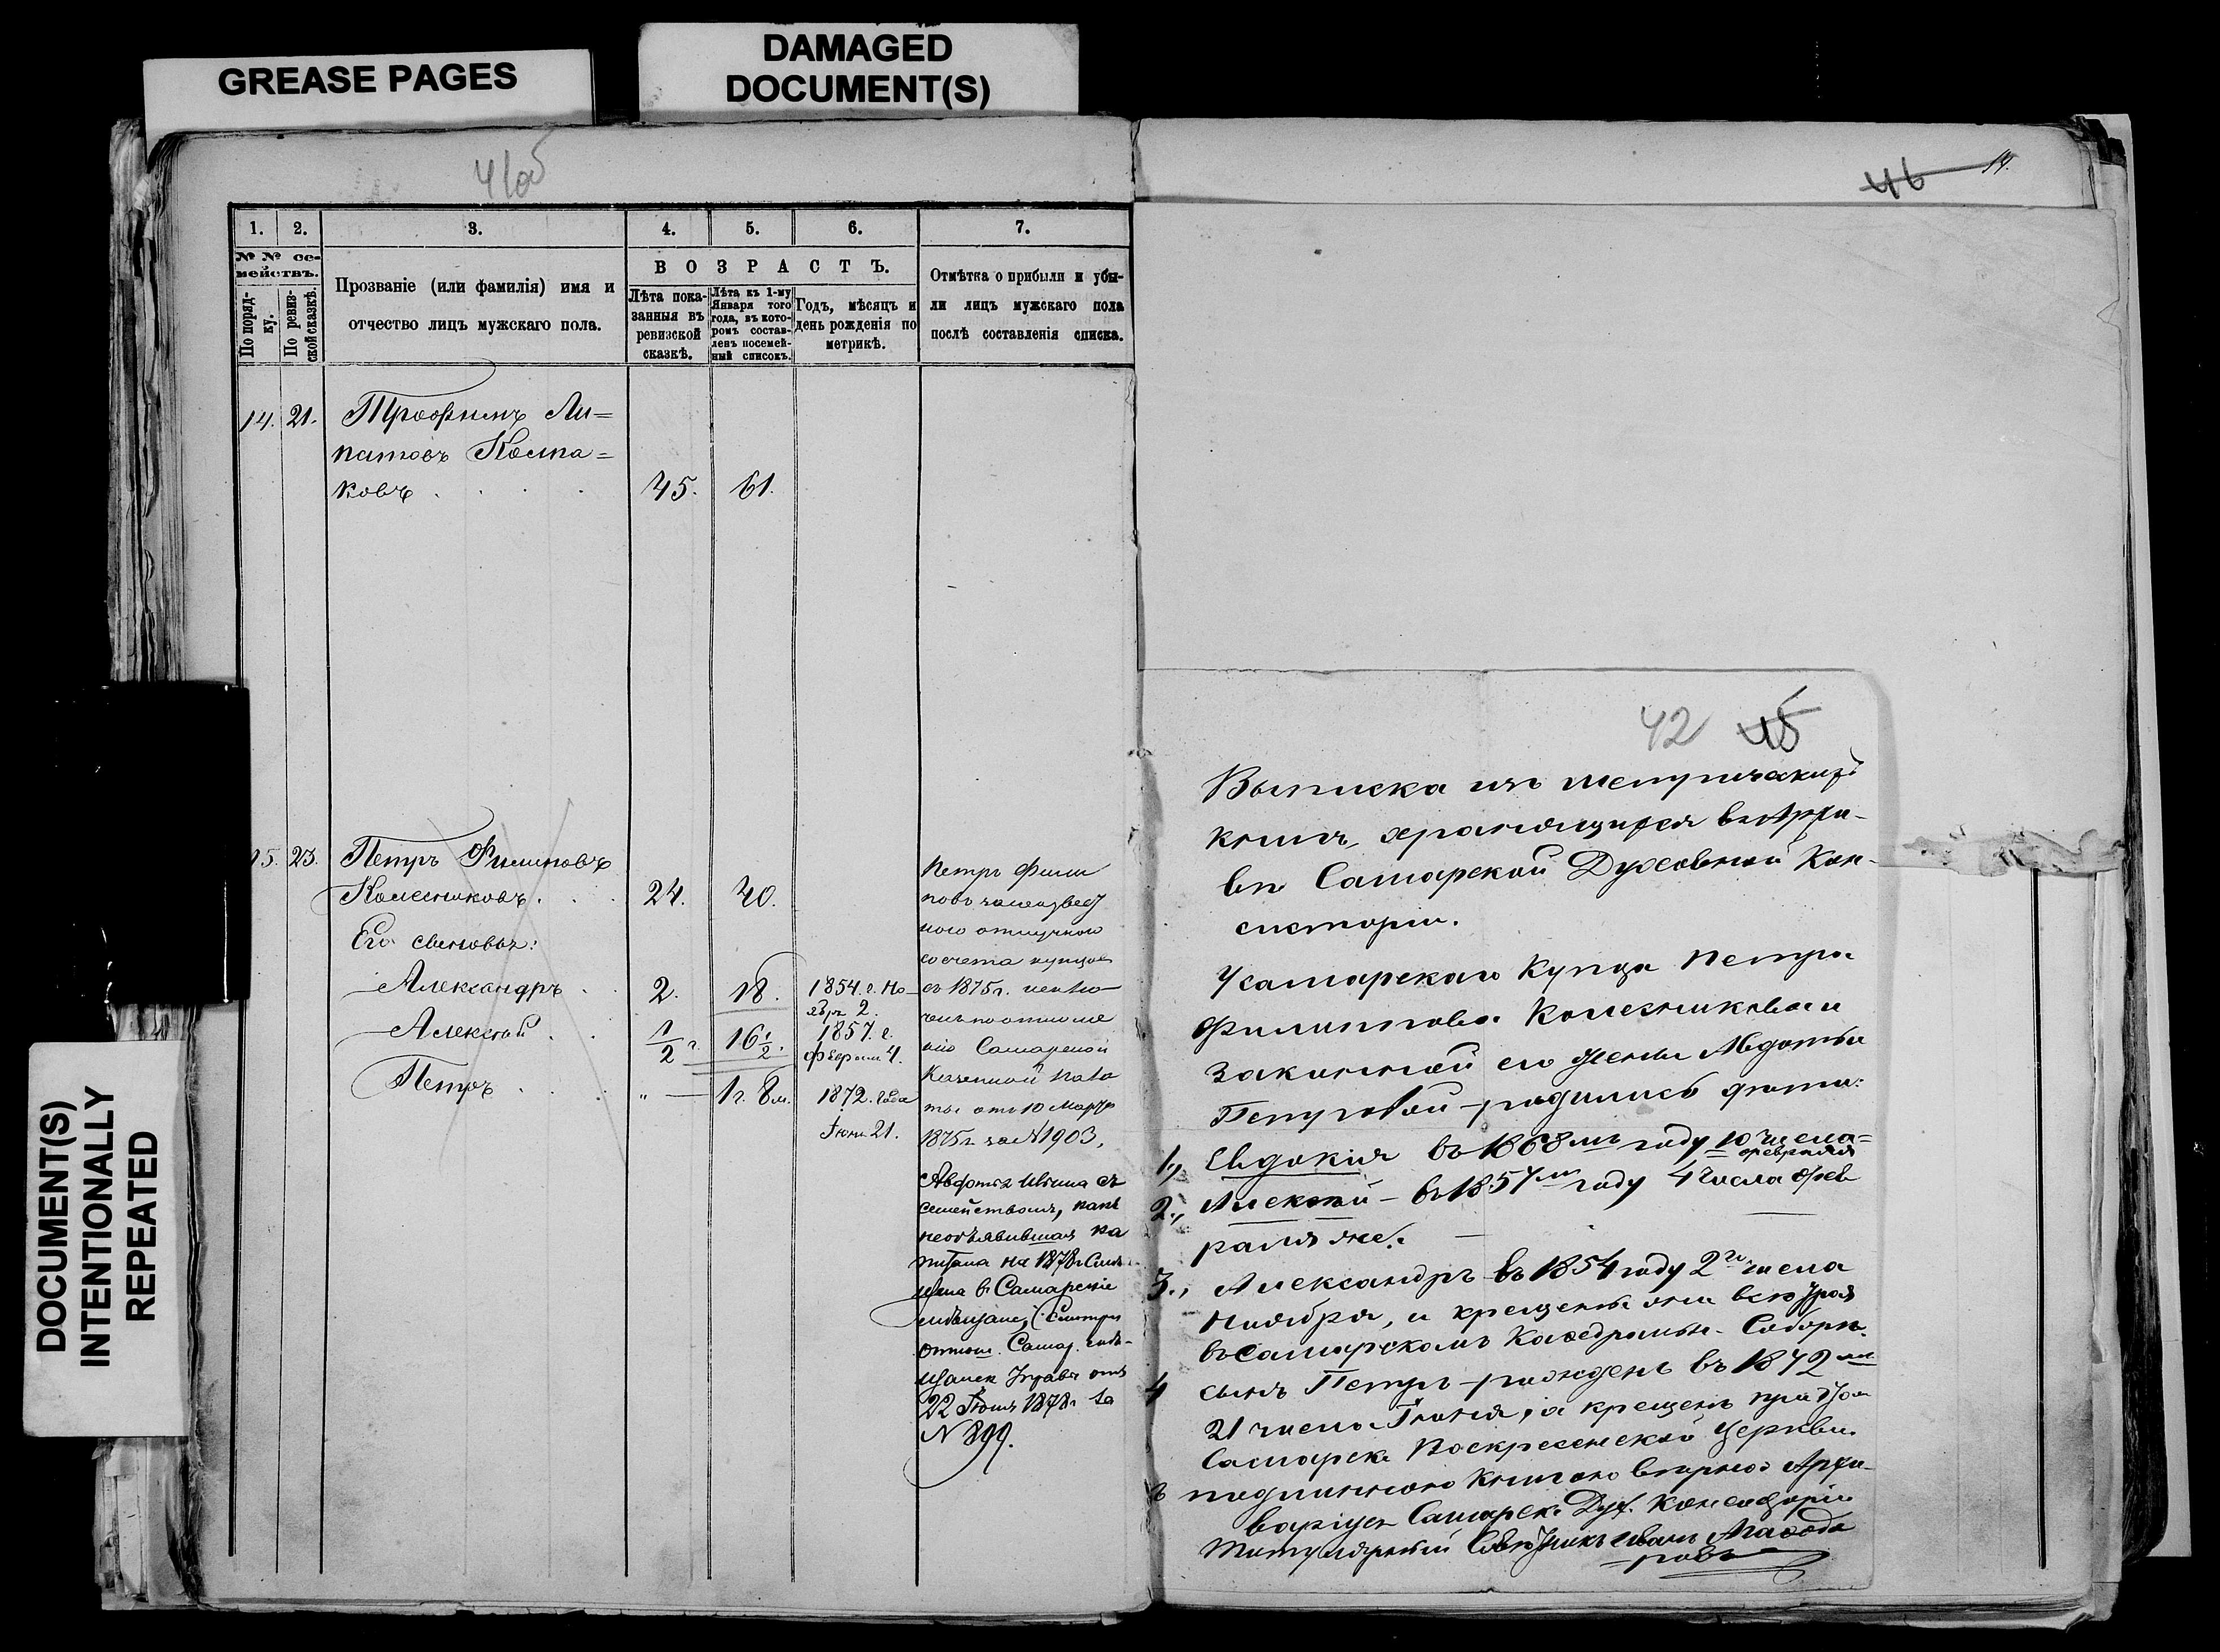 GREASE PAGES
DAMAGED
DOCUMENT(S)
DOCUMENT(S)
INTENTIONALLY
REPEATED
41об
1. 2. 3. 4. 5. 6. 7.
№ № се-
мействъ.
По поряд-
ку.
По ревиз-
ской сказкѣ.
Прозваніе (или фамилія) имя и
отчество лицъ мужскаго пола.
ВОЗРАСТЪ.
Лѣта пока-
занныя въ
ревизской
сказкѣ.
Лѣта къ 1-му
Января того
года, въ кото-
ромъ состав-
ленъ посемей-
ный списокъ.
Годъ, мѣсяцъ и
день рожденія по
метрикѣ.
Отмѣтка о прибыли и убы-
ли лицъ мужскаго пола
послѣ составленія списка.
14. 21. Трофимъ Ли=
патовъ
ковъ 45. 61.
15. 23. Петръ Филиповъ
Колесниковъ 24. 40.
Его сыновья:
Александръ 2. 18. 1854. г. Но-
ября 2.
Алексѣй 1/2 г. 16 1/2. 1857. г.
февраля 4.
Петръ " — 1 г. 8 м. 1872. года
Іюня 21.
Петръ Фили
повъ
со счета купцовъ
съ 1875 г. исклю-
ченъ по отноше
нію Самарской
Казенной Пала
ты отъ 10 Марта
1875 г. за № 1903,
семействомъ, какъ
необъявившая ка
питала на 1878 г.
щена в Самарскіе
мѣщане, (Смотри
отнош. Самар. мѣ-
щанск Управы отъ
22 1878 г за
№ 899.
46 14.
42 45
Выписка изъ метрическихъ
книгъ, хранящихся въ Архи-
вѣ Самарской Духовной Кон-
систоріи.
У самарскаго Купца Петра
Филиппова Колесникова и
законной его жены Авдотьи
Петровой родились дѣти:
1., Евдокія въ 1868мъ году 10 числа=
февраля
2., Алексѣй – въ 1857мъ году 4 числа фев
раля же.
3., Александръ въ 1854 году 2го числа
Ноября, и крещены они
въ Самарскомъ Каѳедральн. Соборѣ.
4 сынъ Петръ рожденъ въ 1872мъ
21 числа Іюня, а крещенъ при
Самарск. Воскресенской церкви.
подлинною книгою вѣрно: Архи-
варіусъ Самарск. Дух. Консисторіи
Титулярный Совѣтникъ Иванъ